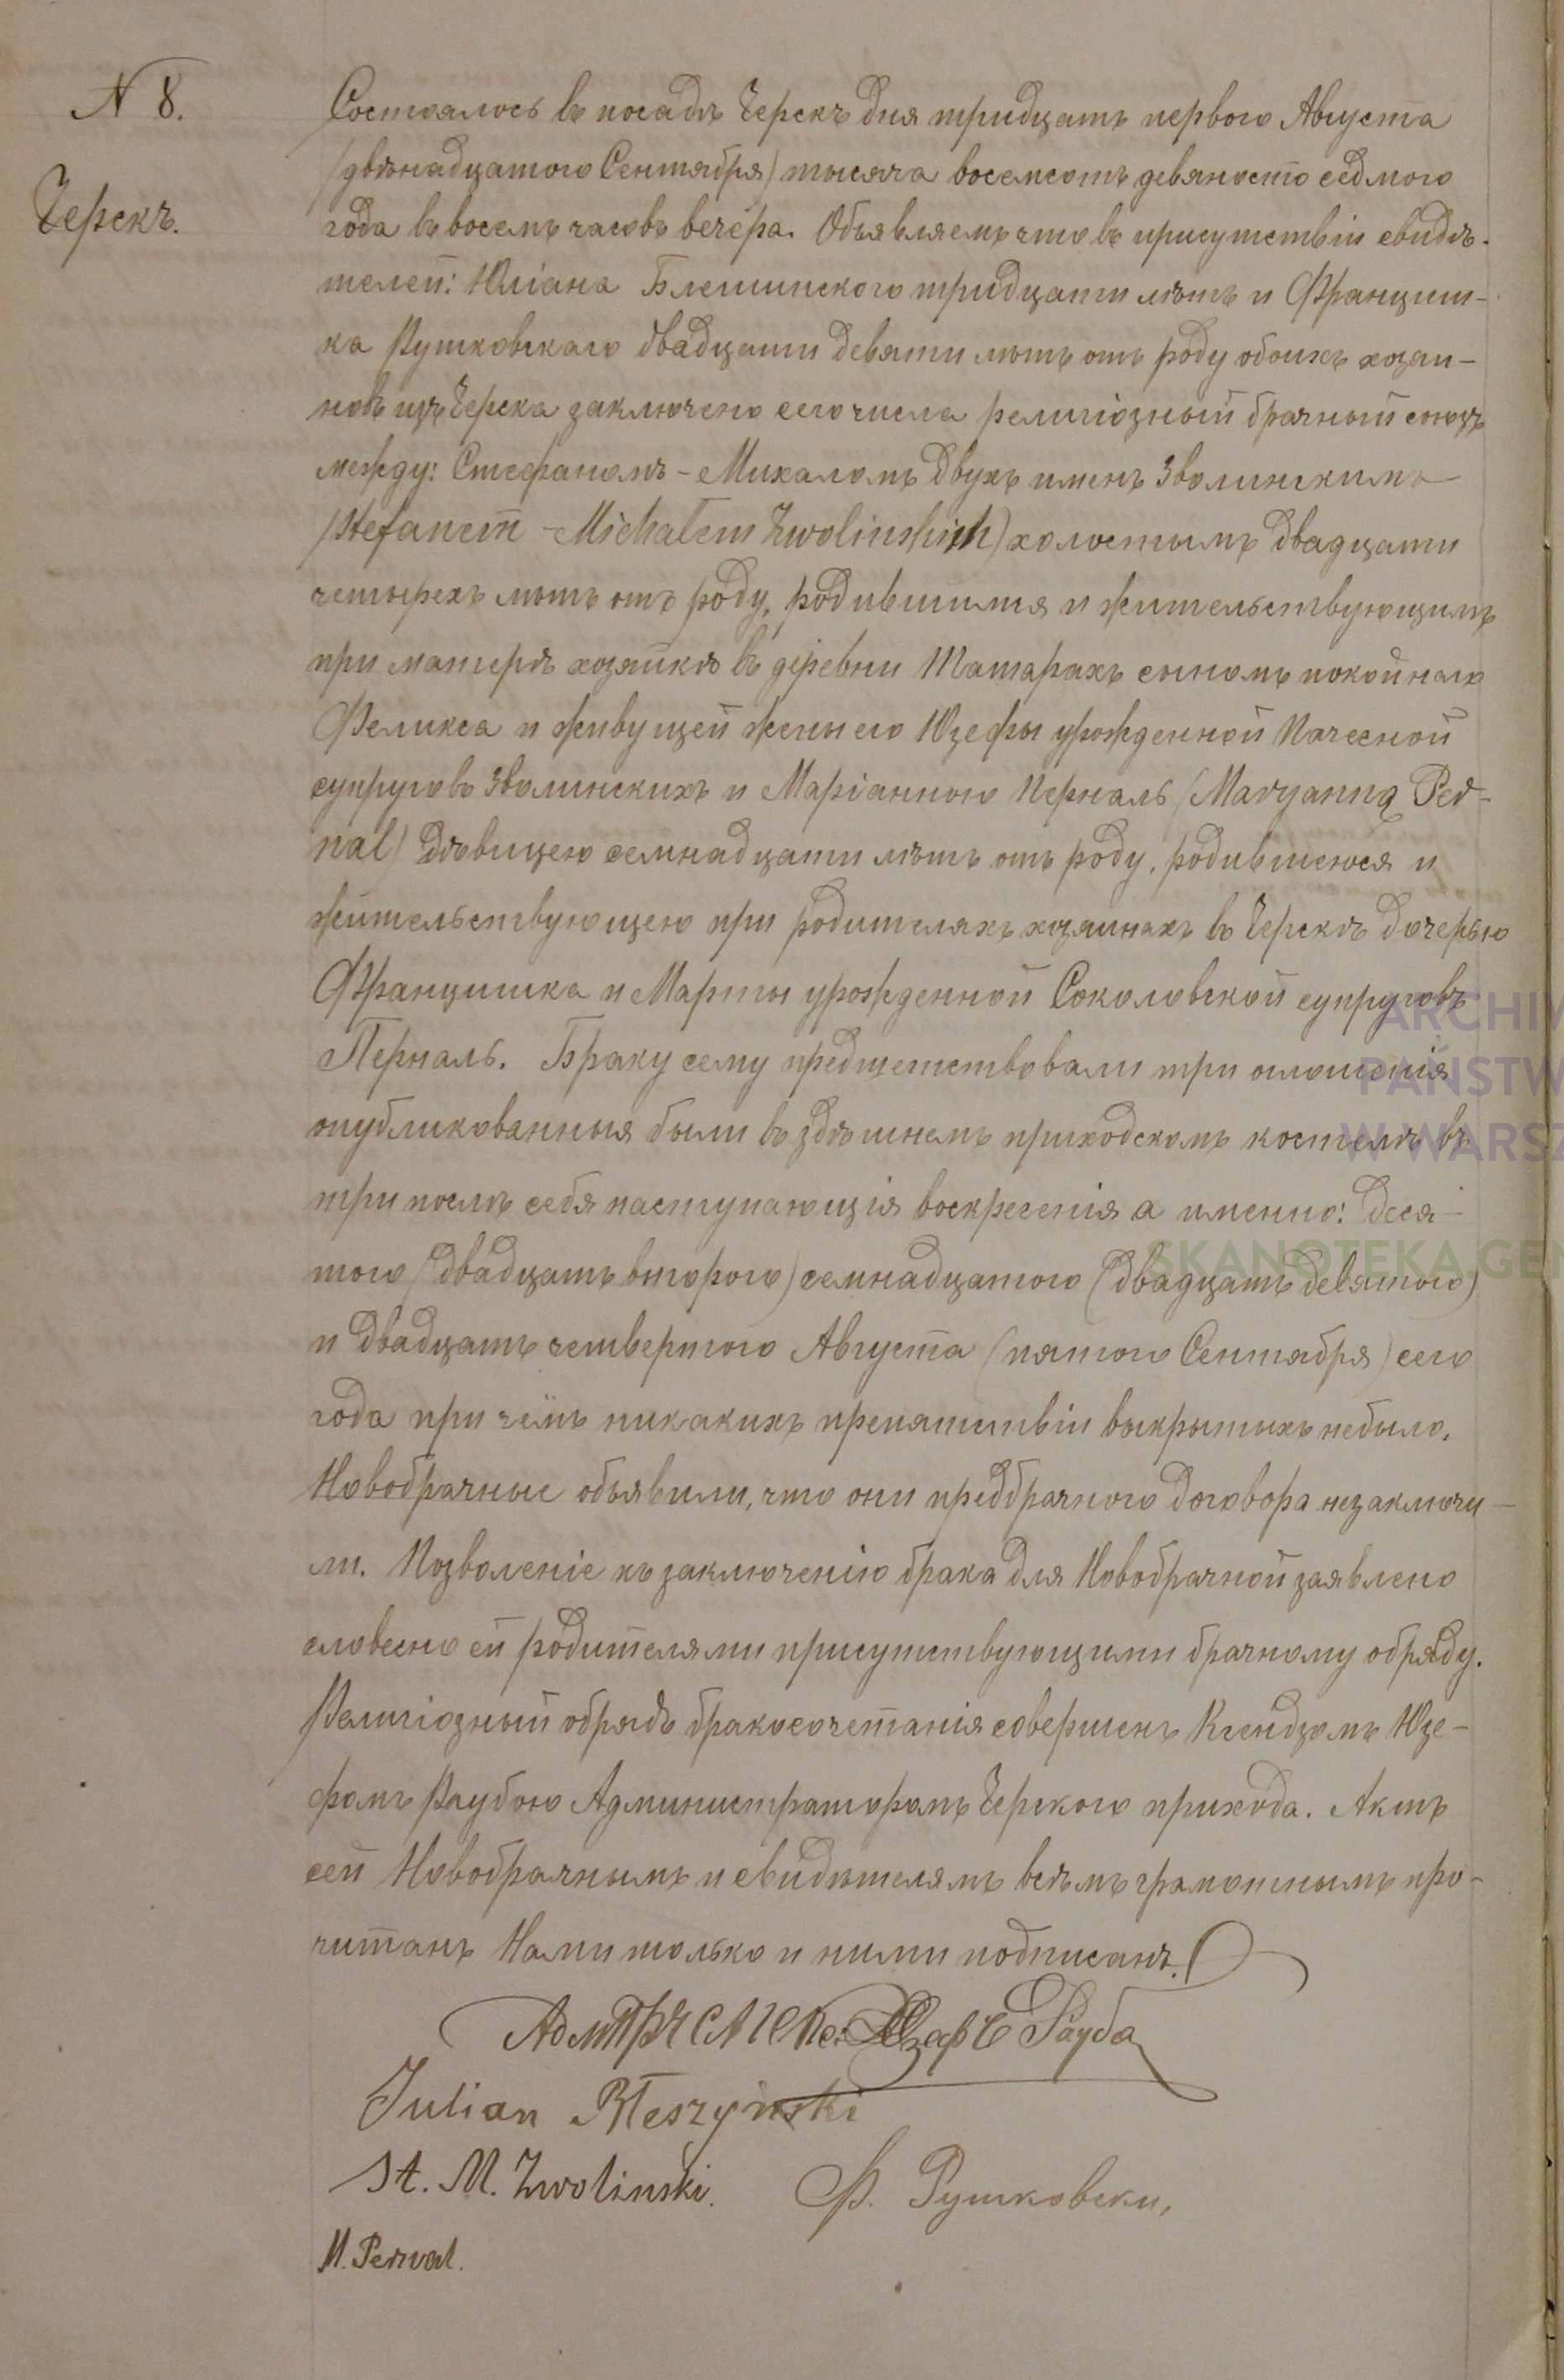 N 8.
Черскъ.
Состоялось въ посадѣ Черскъ дня тридцать перваго Августа
(двѣнадцатого Сентября) тысяча восемсотъ девяносто седмого
года въ восемь часовъ вечера. Объявляемъ что въ присутствіи свидѣ-
телей: Юліана Блешинского тридцати лѣтъ и Францишка-
ка Рушковскаго двадцати девяти лѣтъ отъ роду обоихъ хозаи-
новъ изъ Черска заключено сего числа религіозный брачный союзъ
между: Стефаномъ-Михаломъ двухъ именъ Зволинскимъ
(Stefanem-Michałem Zwolinskim) холостымъ двадцати
четырехъ лѣтъ отъ роду, родившимся и жительствующимъ
при матерѣ хозяйкѣ въ деревни Татарахъ сыномъ покойнаго
Феликса и живущей жены его Юзефы урожденной Пачесной
супруговъ Зволинскихъ и Маріанною Перналь (Maryanną Per-
nal) дѣвицею семнадцати лѣтъ отъ роду, родившеюся и
жительствующею при родителяхъ хозяинахъ въ Черскѣ дочерью
Францишка и Марты урожденной Соколовской супруговъ
Перналь. Браку сему предшествовали три оглошенія
опубликованныя были въ здѣшнемъ приходскомъ костелѣ въ
три послѣ себя наступающія воскресенія а именно: деся-
того (двадцать второго) семнадцатого (двадцать девятого)
и двадцать четвертого Августа (пятого Сентября) сего
года при чёмъ никакихъ препятствіи выкрытыхъ небыло.
Новобрачные объявили, что они предбрачного договора незаключи-
ли. Позволеніе къ заключенію брака для Новобрачной заявлено
словесно ей родителями присутствующими брачному обряду.
Религіозный обрядъ бракосочетанія совершенъ Ксендзомъ Юзе-
фомъ Раубою Администраторомъ Черского прихода. Актъ
сей Новобрачнымъ и свидѣтелямъ всѣмъ грамотнымъ про-
читанъ Нами только и ними подписанъ.
Рауба
Julian Błeszyński
St. M. Zwolinski. Ф. Рушковски,
M. Pernal.
ARCHIW
PAŃSTW
W WARSZ
SKANOTEKA.GEN